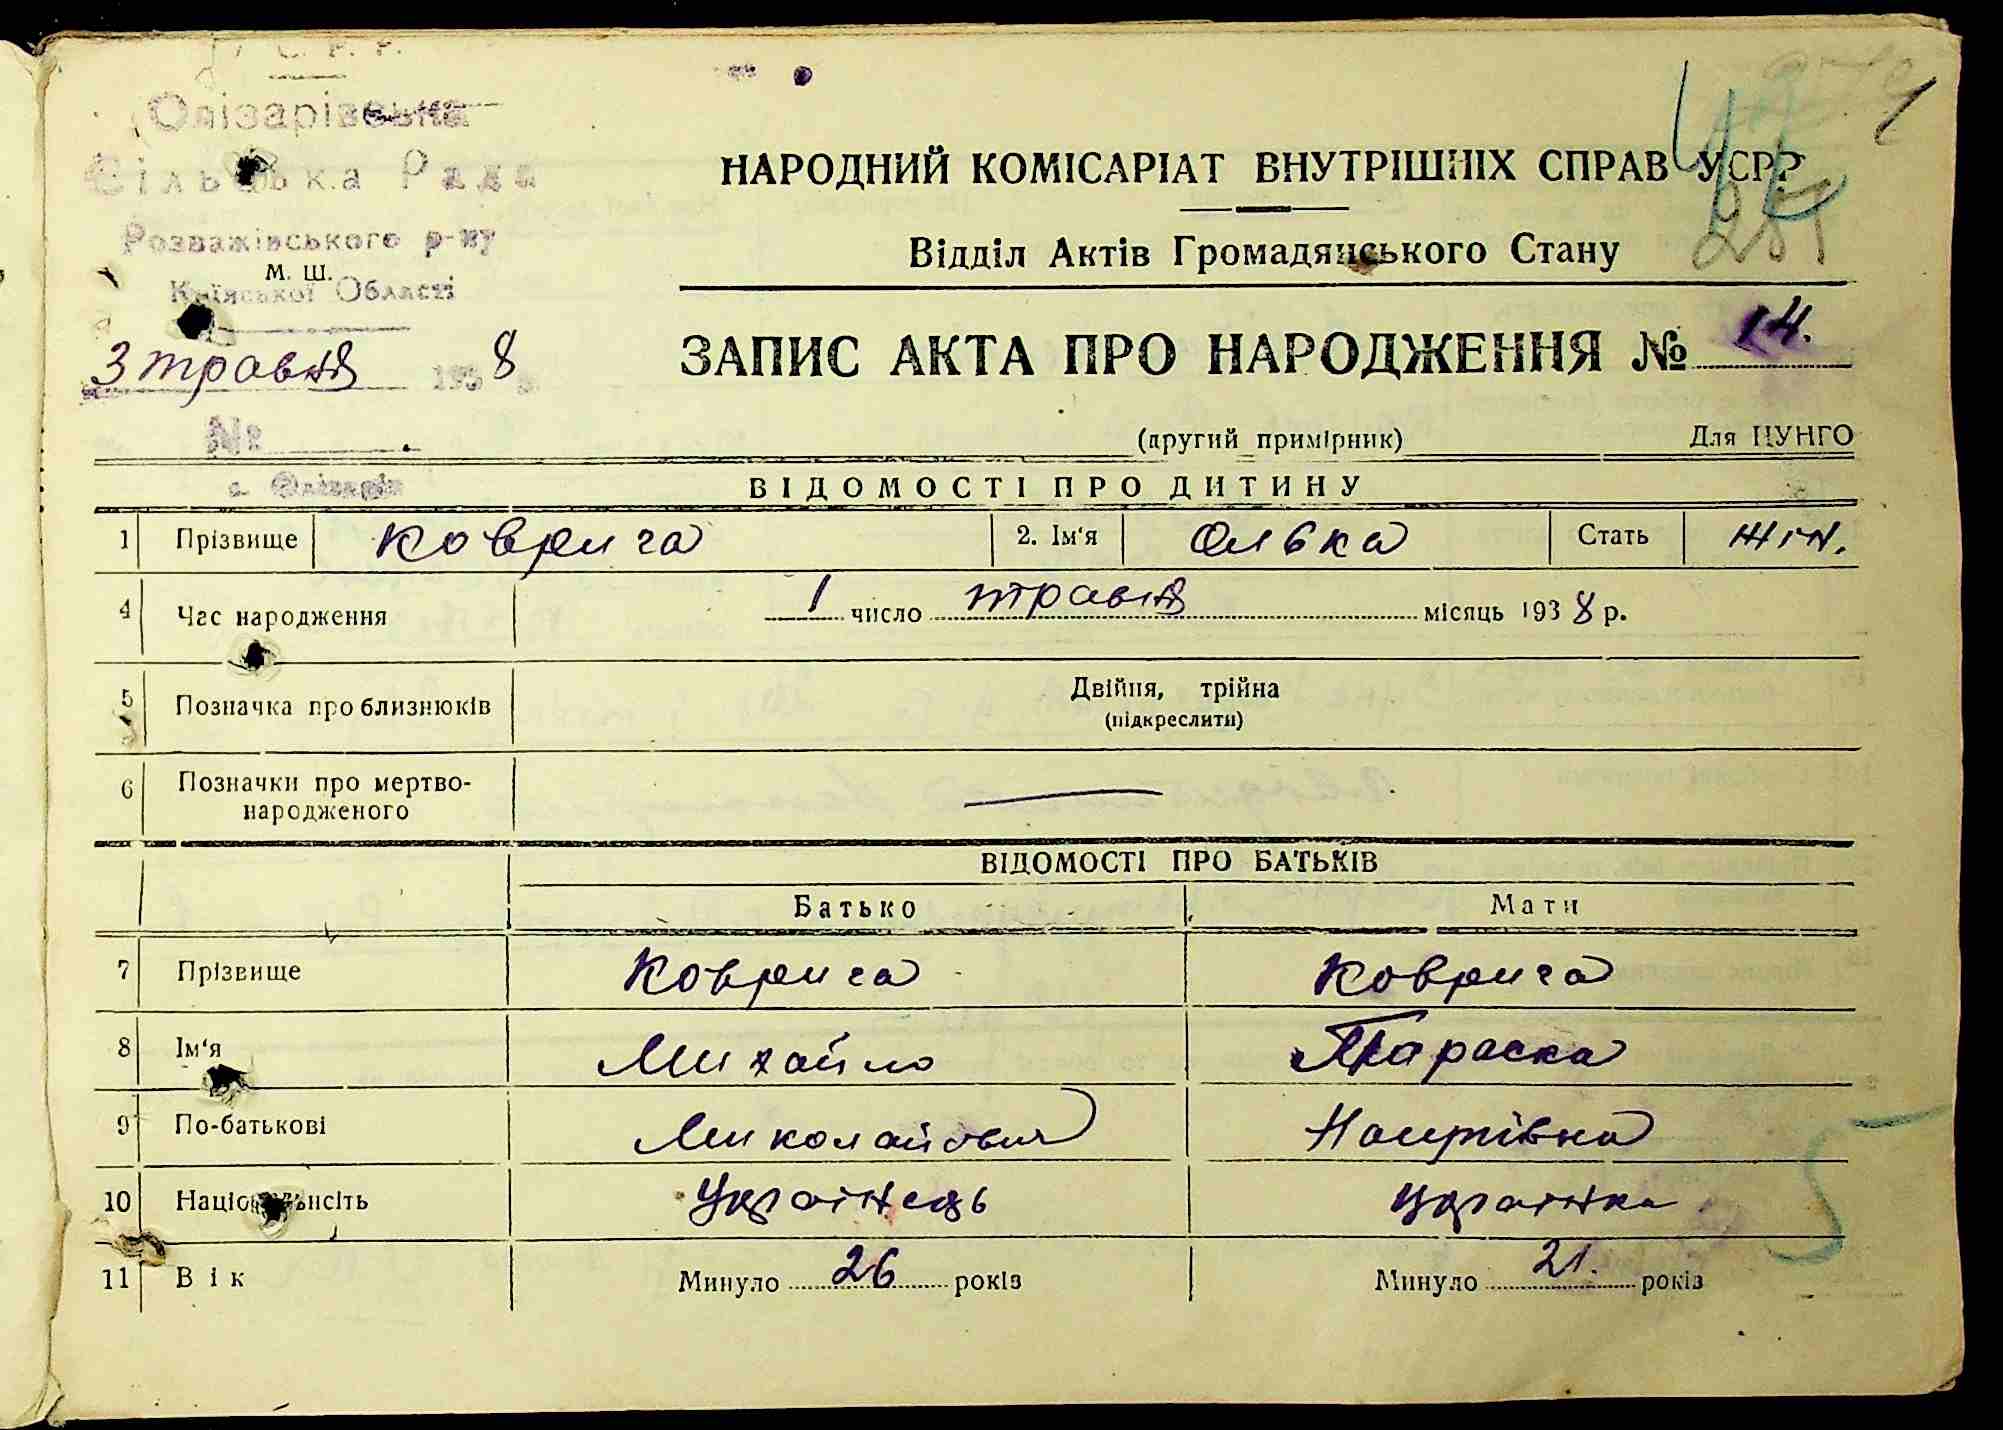 С. Р. Р.
Олізарівська
Сільська Рада
Розважівського р-ну
М. Ш.
Київської Области
3 травня 1938
№
с. Олізарів
274
251
НАРОДНИЙ КОМІСАРІАТ ВНУТРІШНІХ СПРАВ УСРР
Відділ Актів Громадянського Стану
ЗАПИС АКТА ПРО НАРОДЖЕННЯ № 14.
(другий примірник) Для ЦУНГО
ВІДОМОСТІ ПРО ДИТИНУ
1 Прізвище Коврига 2. Ім'я Олька Стать жін.
4 Час народження 1 число травня місяць 1938 р.
5 Позначка про близнюків Двійня, трійна
(підкреслити)
6 Позначки про мертво-
народженого
ВІДОМОСТІ ПРО БАТЬКІВ
Батько Мати
7 Прізвище Коврига Коврига
8 Ім'я Михайло Параска
9 По-батькові Миколайович
10 Національнсіть Українець Українка
11 Вік Минуло 26 років Минуло 21. років